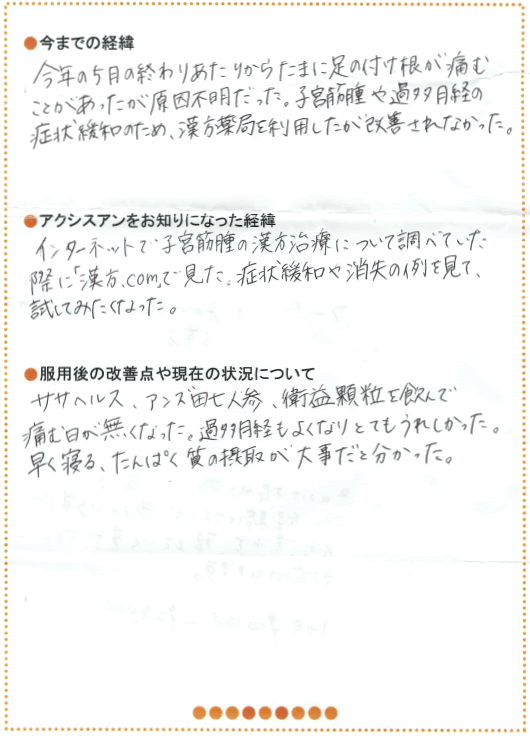 ●今までの経緯
今年の5月の終わりあたりからたまに足の付け根が痛む
ことがあったが原因不明だった。子宮筋腫や過多月経の
症状緩和のため、漢方薬局を利用したが改善されなかった。
●アクシスアンをお知りになった経緯
インターネットで子宮筋腫の漢方治療について調べていた
際に「漢方.com」で見た。症状緩和や消失の例を見て、
試してみたくなった。
●服用後の改善点や現在の状況について
ササヘルス、アンズ田七人参、衛益顆粒を飲んで
痛む日が無くなった。過多月経もよくなりとてもうれしかった。
早く寝る、たんぱく質の摂取が大事だと分かった。